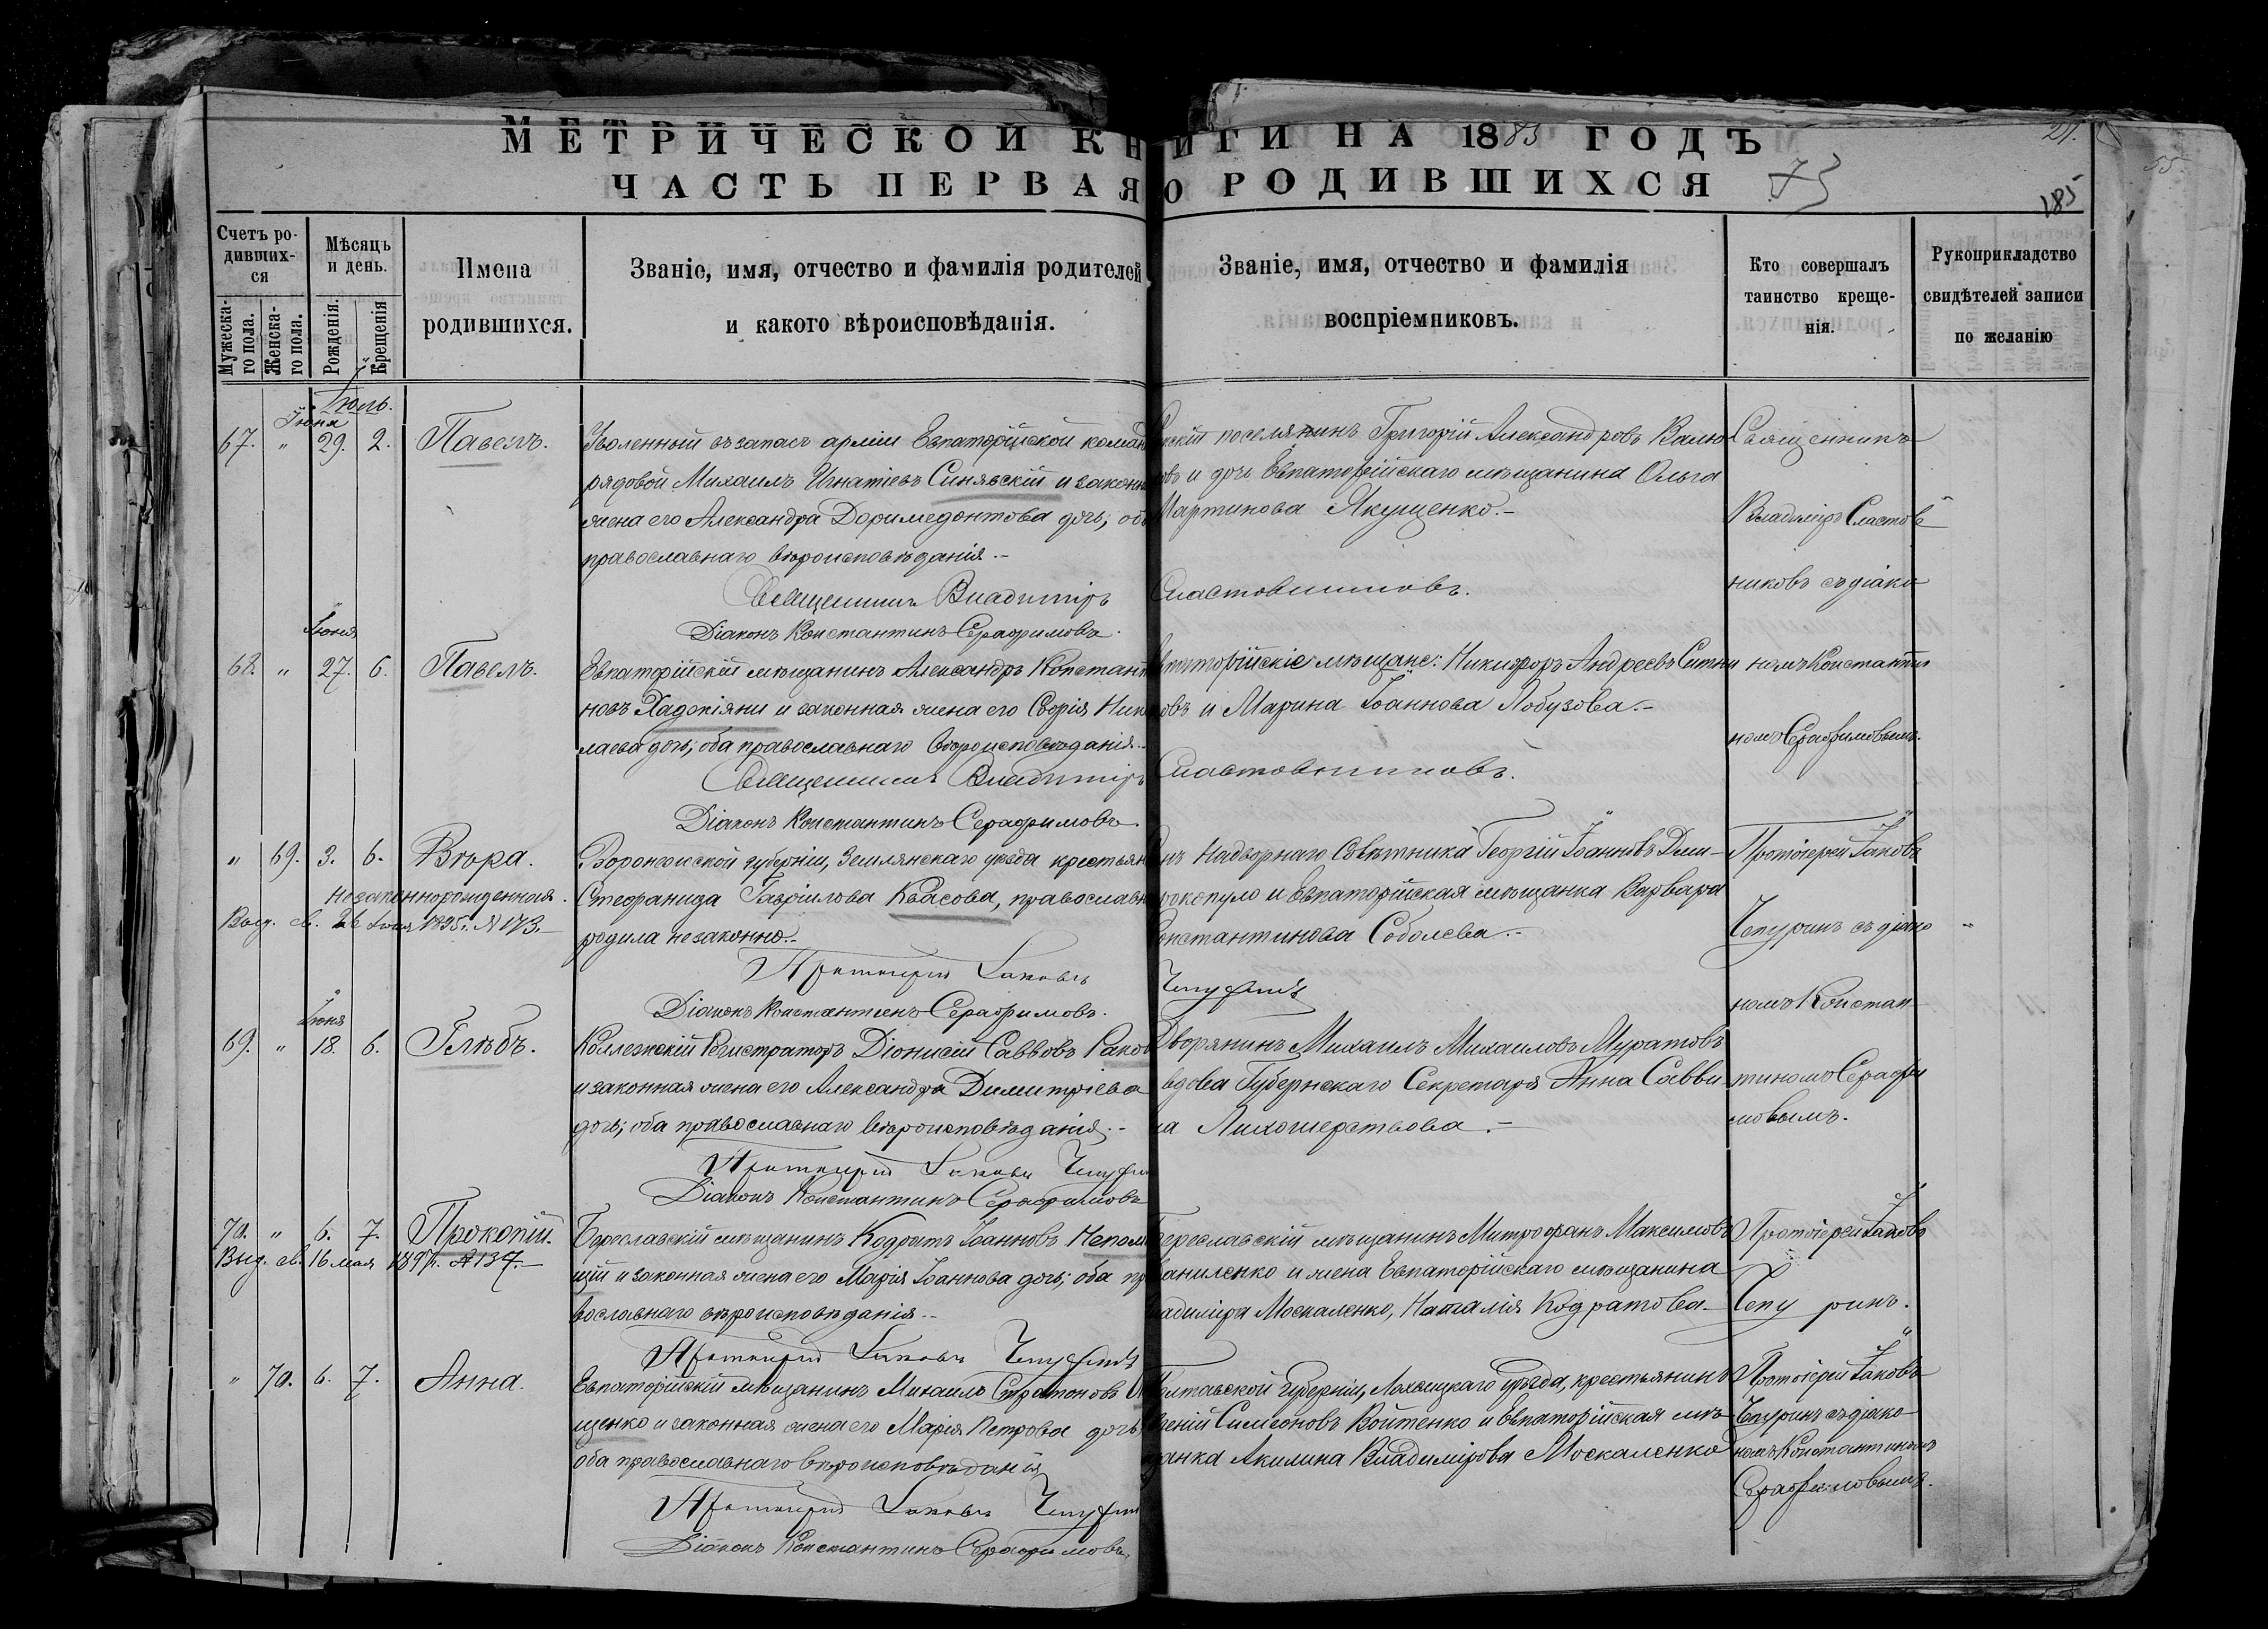 МЕТРИЧЕСКОЙ КНИГИ НА 1883 ГОДЪ
21.
55.
ЧАСТЬ ПЕРВАЯ О РОДИВШИХСЯ
185
Счетъ родивших-
ся
Мужеска-
го пола.
Женска-
го пола.
Мѣсяцъ
и день.
Рожденія.
Крещенія
Имена
родившихся.
Званіе, имя, отчество и фамилія родителей
и какого вѣроисповѣданія.
Званіе, имя, отчество и фамилія
воспріемниковъ.
Кто совершалъ
таинство креще-
нія.
Рукоприкладство
свидѣтелей записи
по желанію
Іюль.
Іюня
67. " 29. 2. Павелъ.
Уволенный въ запасъ арміи Евпаторійской коман
рядовой Михаилъ Игнатіевъ Синявскій и законн
жена его Александра Доримедонтова дочь, об
православнаго вѣроисповѣданія.-
Священникъ Владиміръ Сластовниковъ.
Діаконъ Константинъ Серафимовъ.
скій поселянинъ Григорій Александровъ
овъ и дочь Евпаторійскаго мѣщанина Ольга
Мартинова Якущенко.-
Священникъ
Владиміръ Сластов
никовъ съ діако
номъ Константи
номъ Серафимовымъ.
Іюня
68. " 27. 6. Павелъ.
Евпаторійскій мѣщанинъ Александръ Константи
новъ Хаджіяни и законная жена его Софія Ник
лаева дочь; оба православнаго вѣроисповѣданія.-
Священникъ Владиміръ Сластовниковъ.
Діаконъ Константинъ Серафимовъ.
впаторійскіе мѣщане: Никифоръ Андреевъ Ситни
овъ и Марина Іоаннова Лобузова.-
" 69. 3. 6. Вѣра.
незаконнорожденная.
Выд. св. 26 Іюня 1895 г. № 173.
Воронежской губерніи, Землянскаго уѣзда крестьян
Стефанида Гавріилова Квасова, православн
родила незаконно.-
Протоіерей Іаковъ Чепуринъ
Діаконъ Константинъ Серафимовъ.
нъ Надворнаго Совѣтника Георгій Іоанновъ Дми-
рокопуло и Евпаторійская мѣщанка Варвара
Константинова Соболева.-
Протоіерей Іаковъ
Чепуринъ съ діако
номъ Констан
тиномъ Серафи
мовымъ.
Іюня
69. " 18. 6. Глѣбъ.
Коллежскій Регистраторъ Діонисій Саввовъ Раков
и законная жена его Александра Димитріева
дочь; оба православнаго вѣроисповѣданія.-
Протоіерей Іаковъ Чепурин
Діаконъ Константинъ Серафимовъ
Дворянинъ Михаилъ Михаиловъ Муратовъ
вдова Губернскаго Секретаря Анна Савви
на Лихошерстова.-
70. " 6. 7. Прокопій.
Выд. св. 16 мая 1897 г. № 137.
Береславскій мѣщанинъ Кодратъ Іоанновъ Непом
щій и законная жена его Марія Іоаннова дочь; оба пр
вославнаго вѣроисповѣданія.-
Протоіерей Іаковъ Чепуринъ
Береславскій мѣщанинъ Митрофанъ Максимовъ
аниленко и жена Евпаторійскаго мѣщанина
ладиміра Москаленко, Наталія Кодратова.-
Протоіерей Іаковъ
Чепуринъ.
" 70. 6. 7. Анна.
Евпаторійскій мѣщанинъ Михаилъ Стратоновъ
щенко и законная жена его Марія Петрова дочь
оба православнаго вѣроисповѣданія
Протоіерей Іаковъ Чепурин
Діаконъ Константинъ Серафимовъ.
Полтавской губерніи, Лохвицкаго уѣзда, крестьянинъ
геній Симеоновъ Войтенко и Евпаторійская мѣ-
щанка Акилина Владимірова Москаленко
Протоіерей Іаковъ
Чепуринъ съ діако
номъ Константиномъ
Серафимовымъ.